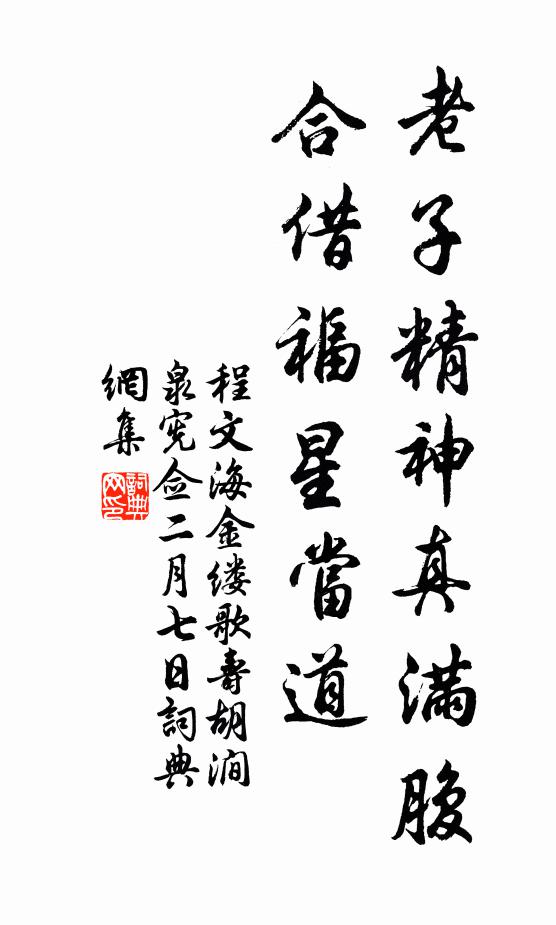 老子精神真满腹
合借福星當道
程文海金缕歌壽胡澗
泉宪佥二月七日詞典
網集
詞典网印